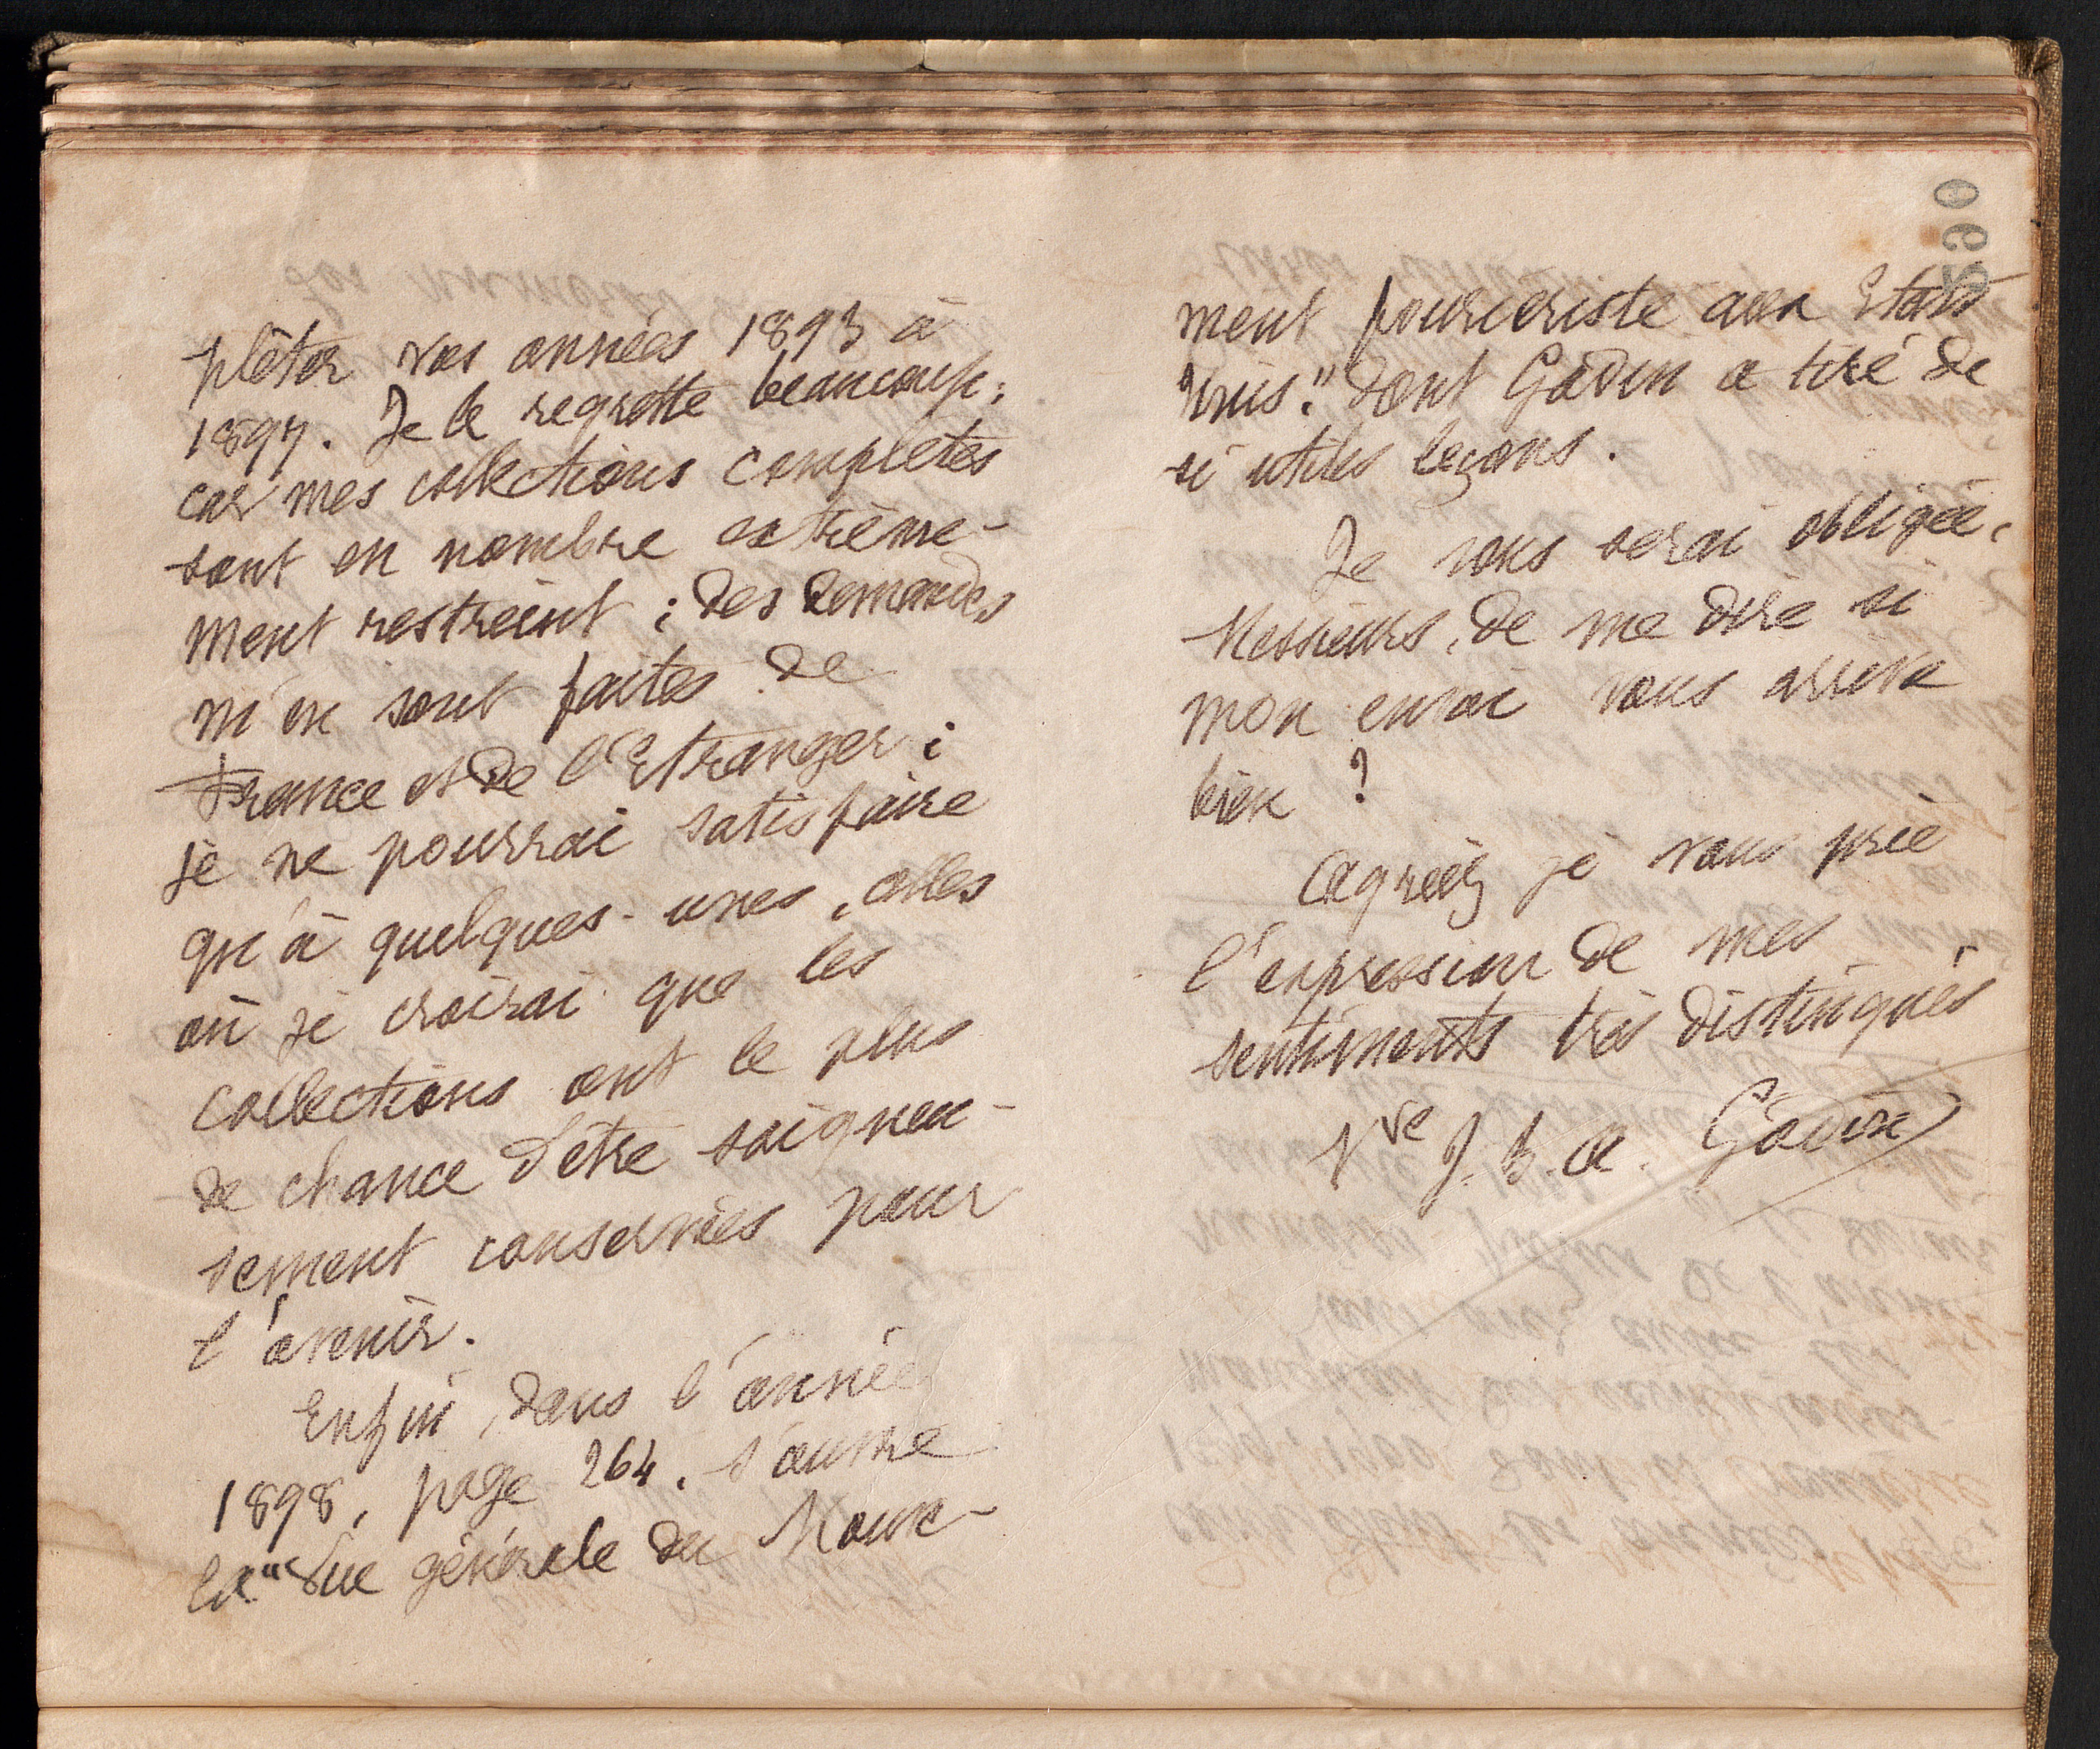 pléter vos années 1893 à
1897. Je le regrette beaucoup,
car mes collections complètes
sont en nombre extrême-
ment restreint ; des demandes
m'en sont faites de
France et de l'Etranger ;
je ne pourrai satisfaire
qu'à quelques-unes, celles
où je croirai que les
collections ont le plus
de chance d'être soigneu-
sement conservées pour
l'avenir.
Enfin, dans l'année
1898, page 264, s'ouvre
la "Vue générale du Mouve-
ment fouriériste aux Etats
Unis." dont Godin a tiré de
si utiles leçons.
Je vous serai obligée,
Messieurs, de me dire si
mon envoi vous arrive
bien ?
Agréez je vous prie
l'expression de mes
sentiments très distingués
Vve J. B. A. Godin
590